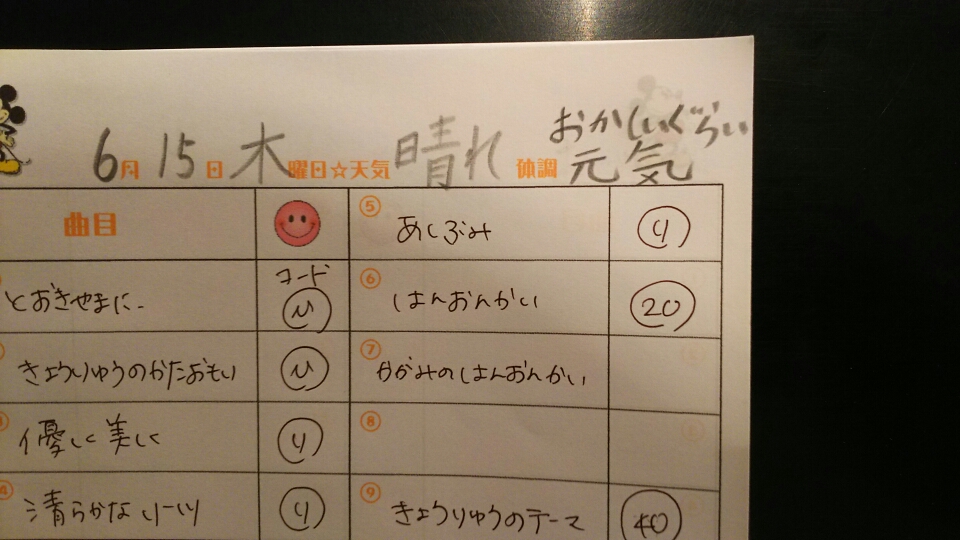 おかしいぐらい
6月15日木曜日☆天気晴れ 体調元気
曲目
コード
とおきやまに
きょうりゅうのかたおもい
優しく美しく
清らかなリーリ
⑤ あしぶみ
⑥ はんおんかい 20
⑦ かがみのはんおんかい
⑧
⑨ きょうりゅうのテーマ 40